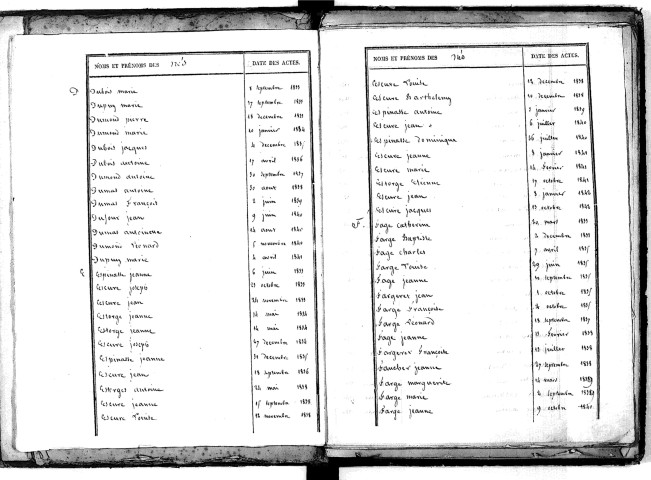 NOMS ET PRÉNOMS DES nés DATE DES ACTES.
D Dubois marie septembre
Dupuy marie septembre
Dumond pierre 18 decembre
Dumond marie 10 janvier
Dubois jacques decembre
Dubois antoine 17 avril 1836
Dumond antoine 30 septembre 1837
Dumas antoine 30 aout 1838
Dumas François 2 juin 1839
Dufour jean 9 juin 1840
Dumas antoinette 24 aout 1840
Dumond Léonard 6 novembre 1840
Dupuy marie 4 avril 1841
E Espinasse jeanne 6 juin
Escure joseph 21 octobre
Escure jean 24 novembre
Estorge jeanne mai
Estorge jeanne mai
Escure joseph 27 decembre
Espinasse jeanne 31 decembre
Escure jean 18 septembre 1836
Estorges antoine 24 mai 1838
Escure jeanne 15 septembre 1838
Escure Louise 18 novembre 1838
NOMS ET PRÉNOMS DES nés DATE DES ACTES.
Escure Louise decembre 1838
Escure Barthelemy decembre 1838
Espinasse antoine janvier 1839
Escure jean 6 juillet 1840
Espinasse Dominique 26 juillet 1840
Escure jeanne 8 janvier 1841
Escure marie 24 fevrier 1841
Estorge Etienne 19 octobre 1841
Escure jean 8 janvier 1842
Escure jacques octobre 1842
F. Fage Catherine mars
Farge Baptiste 2 decembre
Fage charles 7 avril 1835
Farge Louise 29 juin 1835
Fage jeanne 10 septembre 1835
Fargeres jean 1 octobre 1835
Farge Françoise octobre 1835
Farge Léonard 18 septembre 1837
Fage jeanne 13 fevrier 1838
Fargeres Françoise 13 juillet 1838
Faucher jeanne 29 septembre 1838
Farge marguerite mars 1839
Farge marie septembre 1839
Farge jeanne 9 octobre 1841